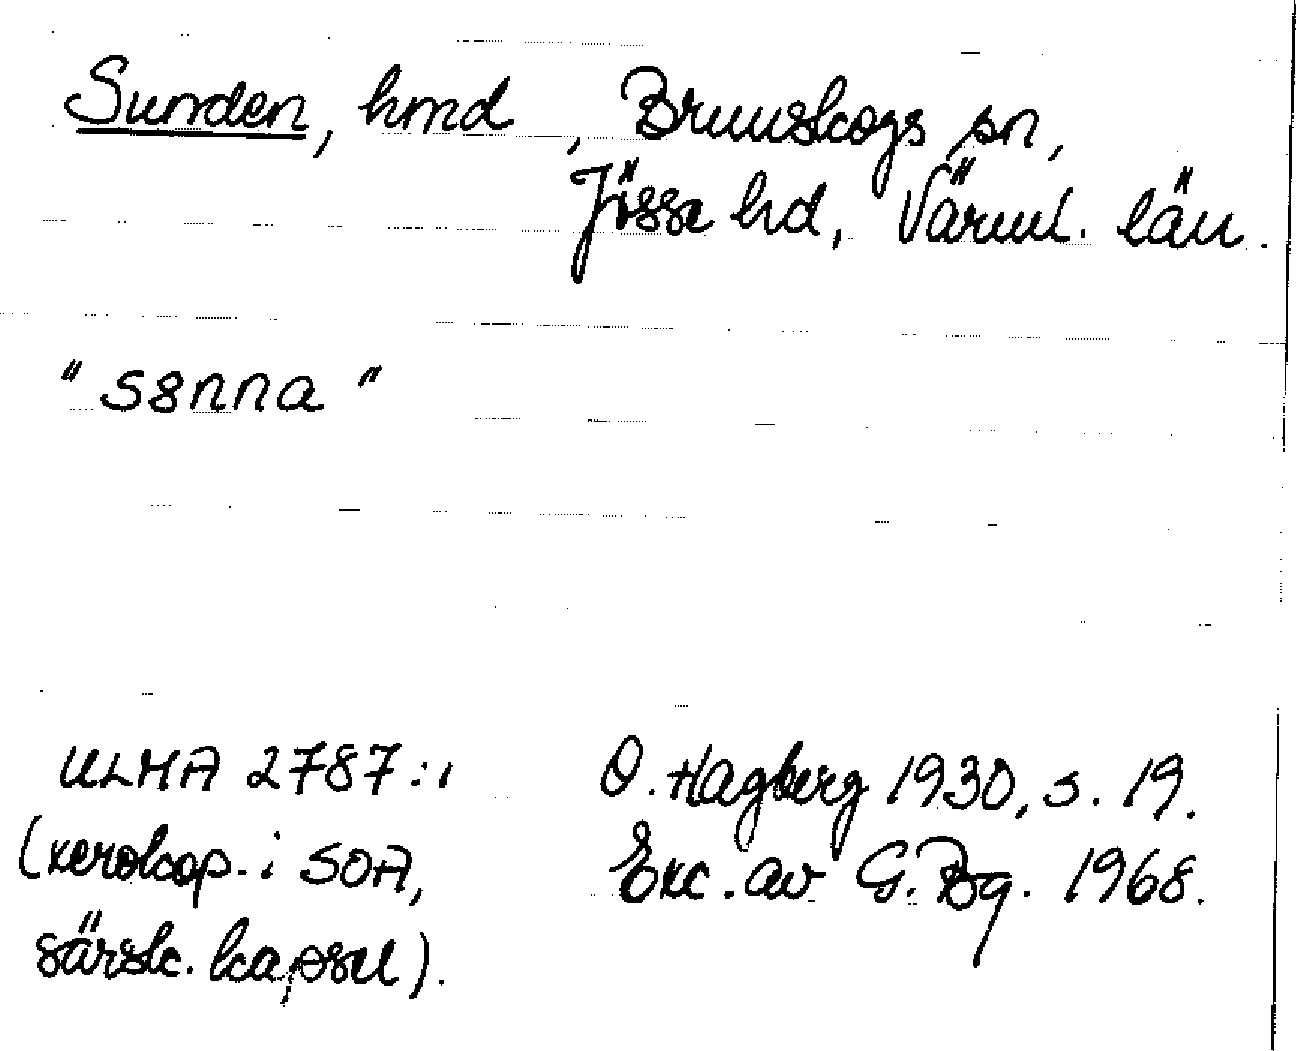 Sunden, hmd, Brunskogs sn,
Jösse hd, Värml. län.
"s8nna"
ULMA 2787:1 O. Hagberg 1930, s. 19.
(xerokop. i SOA, Exc. av G. Bg. 1968.
särsk. kapsel).